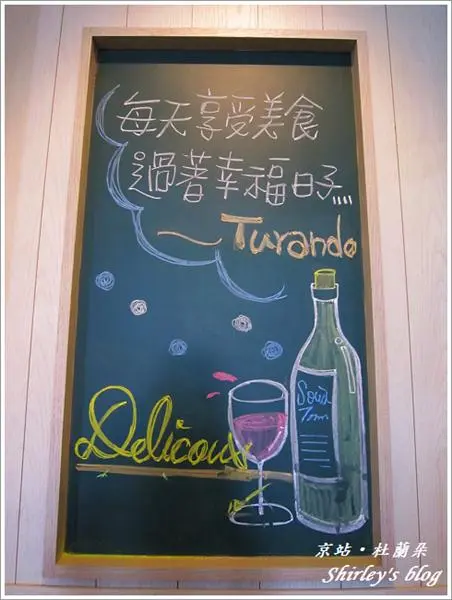 每天享受美食
過著幸福日子....
~Turando
Delicous
京站・杜蘭朵
Shirley's blog